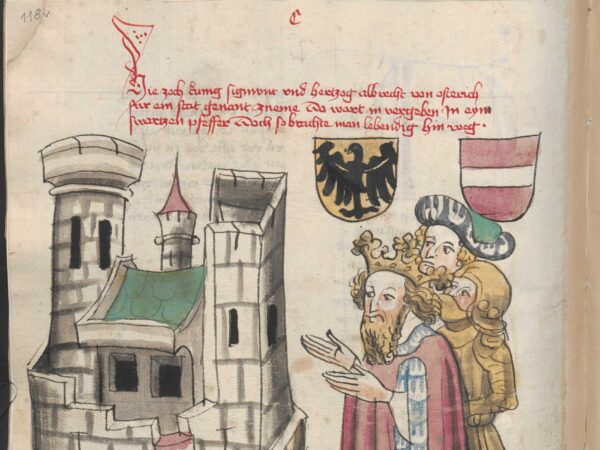 118v
C
Hie zoch kung sigmont vnd hertzog albrecht von osterich
für ein stat genant zneme Do wart in vergeben in eym
swartzen pfeffer Doch so brachte man lebendig hin weg ·